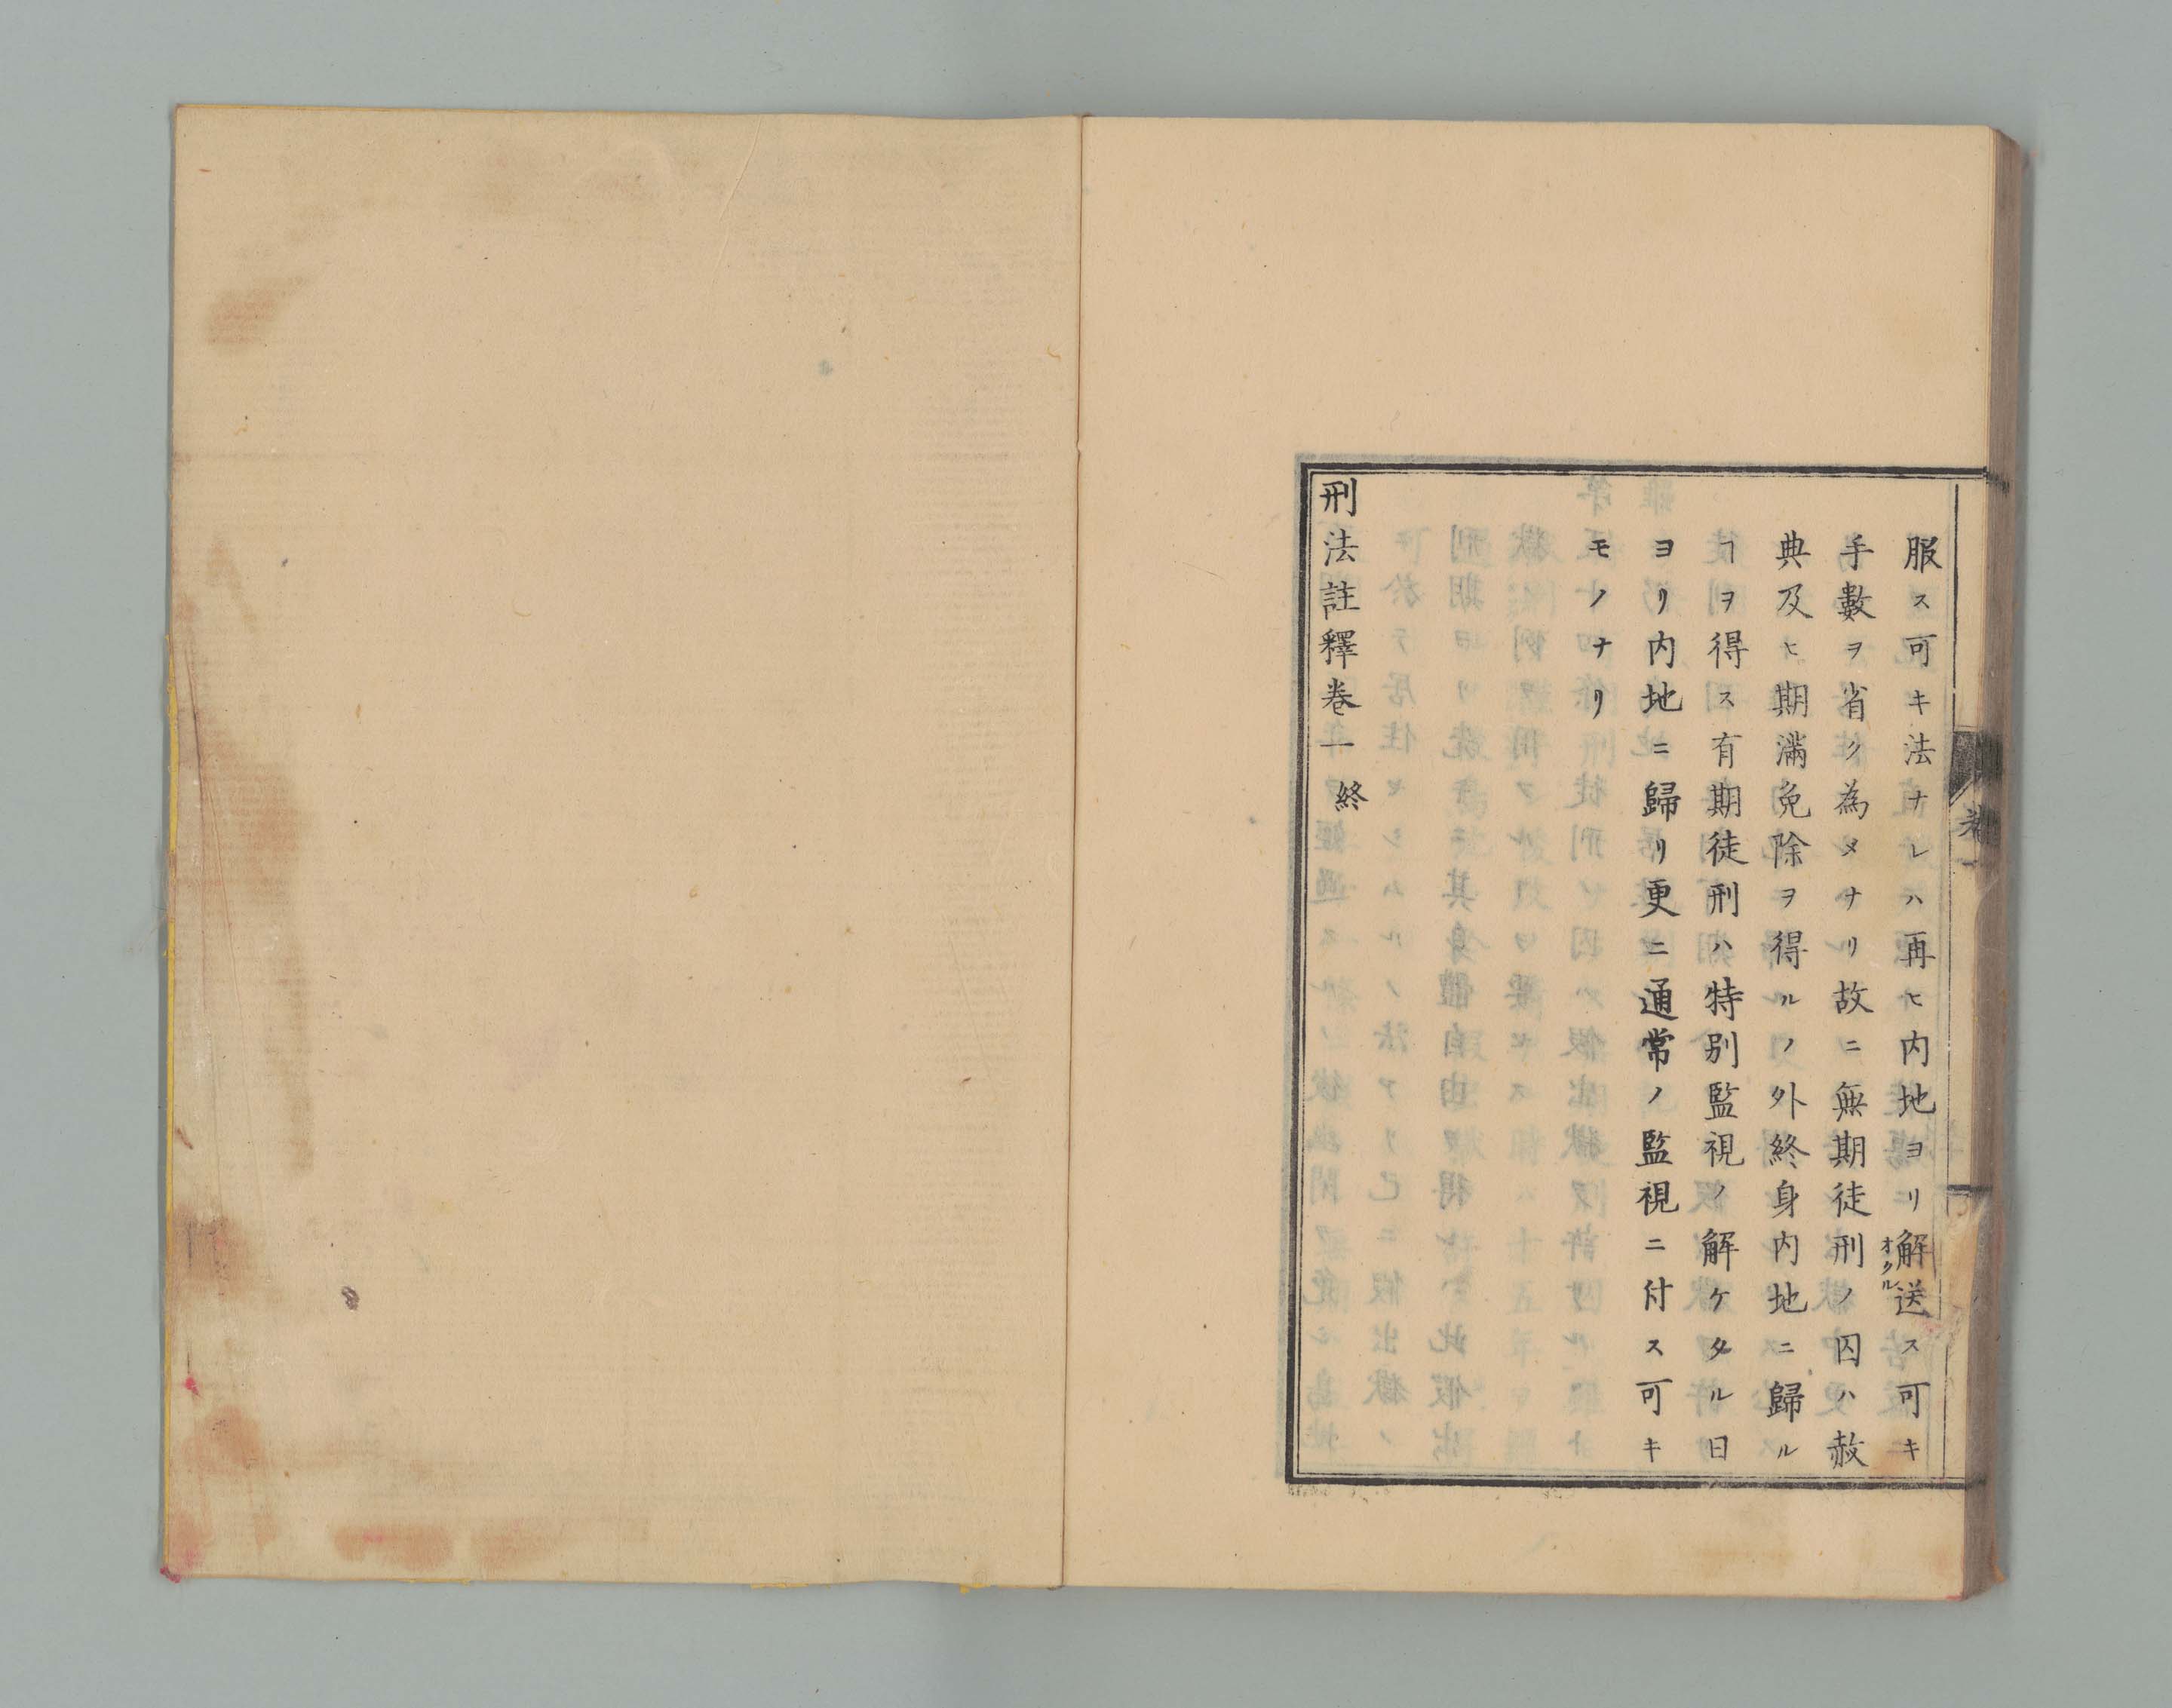 服ス可キ法ナレハ再ヒ内地ヨリ解送ス可キ
オクル
手數ヲ省ク為メナリ故ニ無期徒刑ノ囚ハ赦
典及ヒ期滿免除ヲ得ルノ外終身内地ニ歸ル
ヿヲ得ス有期徒刑ハ特別監視ノ解ケタル日
ヨリ内地ニ歸リ更ニ通常ノ監視ニ付ス可キ
モノナリ
刑法註釋卷一 終